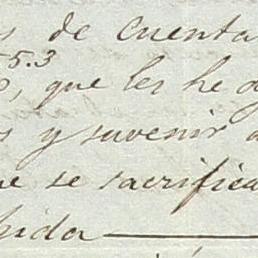 s de cuenta
5.3
, que les he d
s y suvenir a
ue se sacrifica
hida